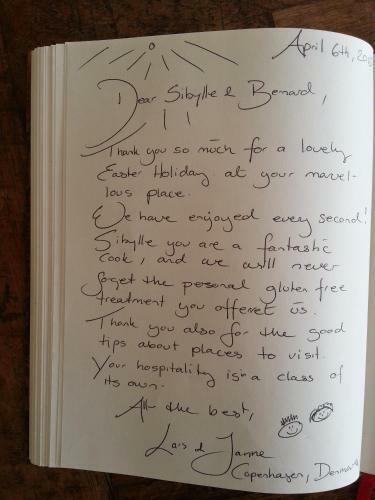 April 6th, 201
Dear Sibylle & Bernard,
Thank you so much for a lovely
Easter Holiday at your marvel-
lous place.
We have enjoyed every second!
Sibylle you are a fantastic
cook, and we will never
forget the personal gluten free
treatment you offeret us.
Thank you also for the good
tips about places to visit.
Your hospitality is in a class of
its own.
All the best,
Lars & Janne
Copenhagen, Denmark